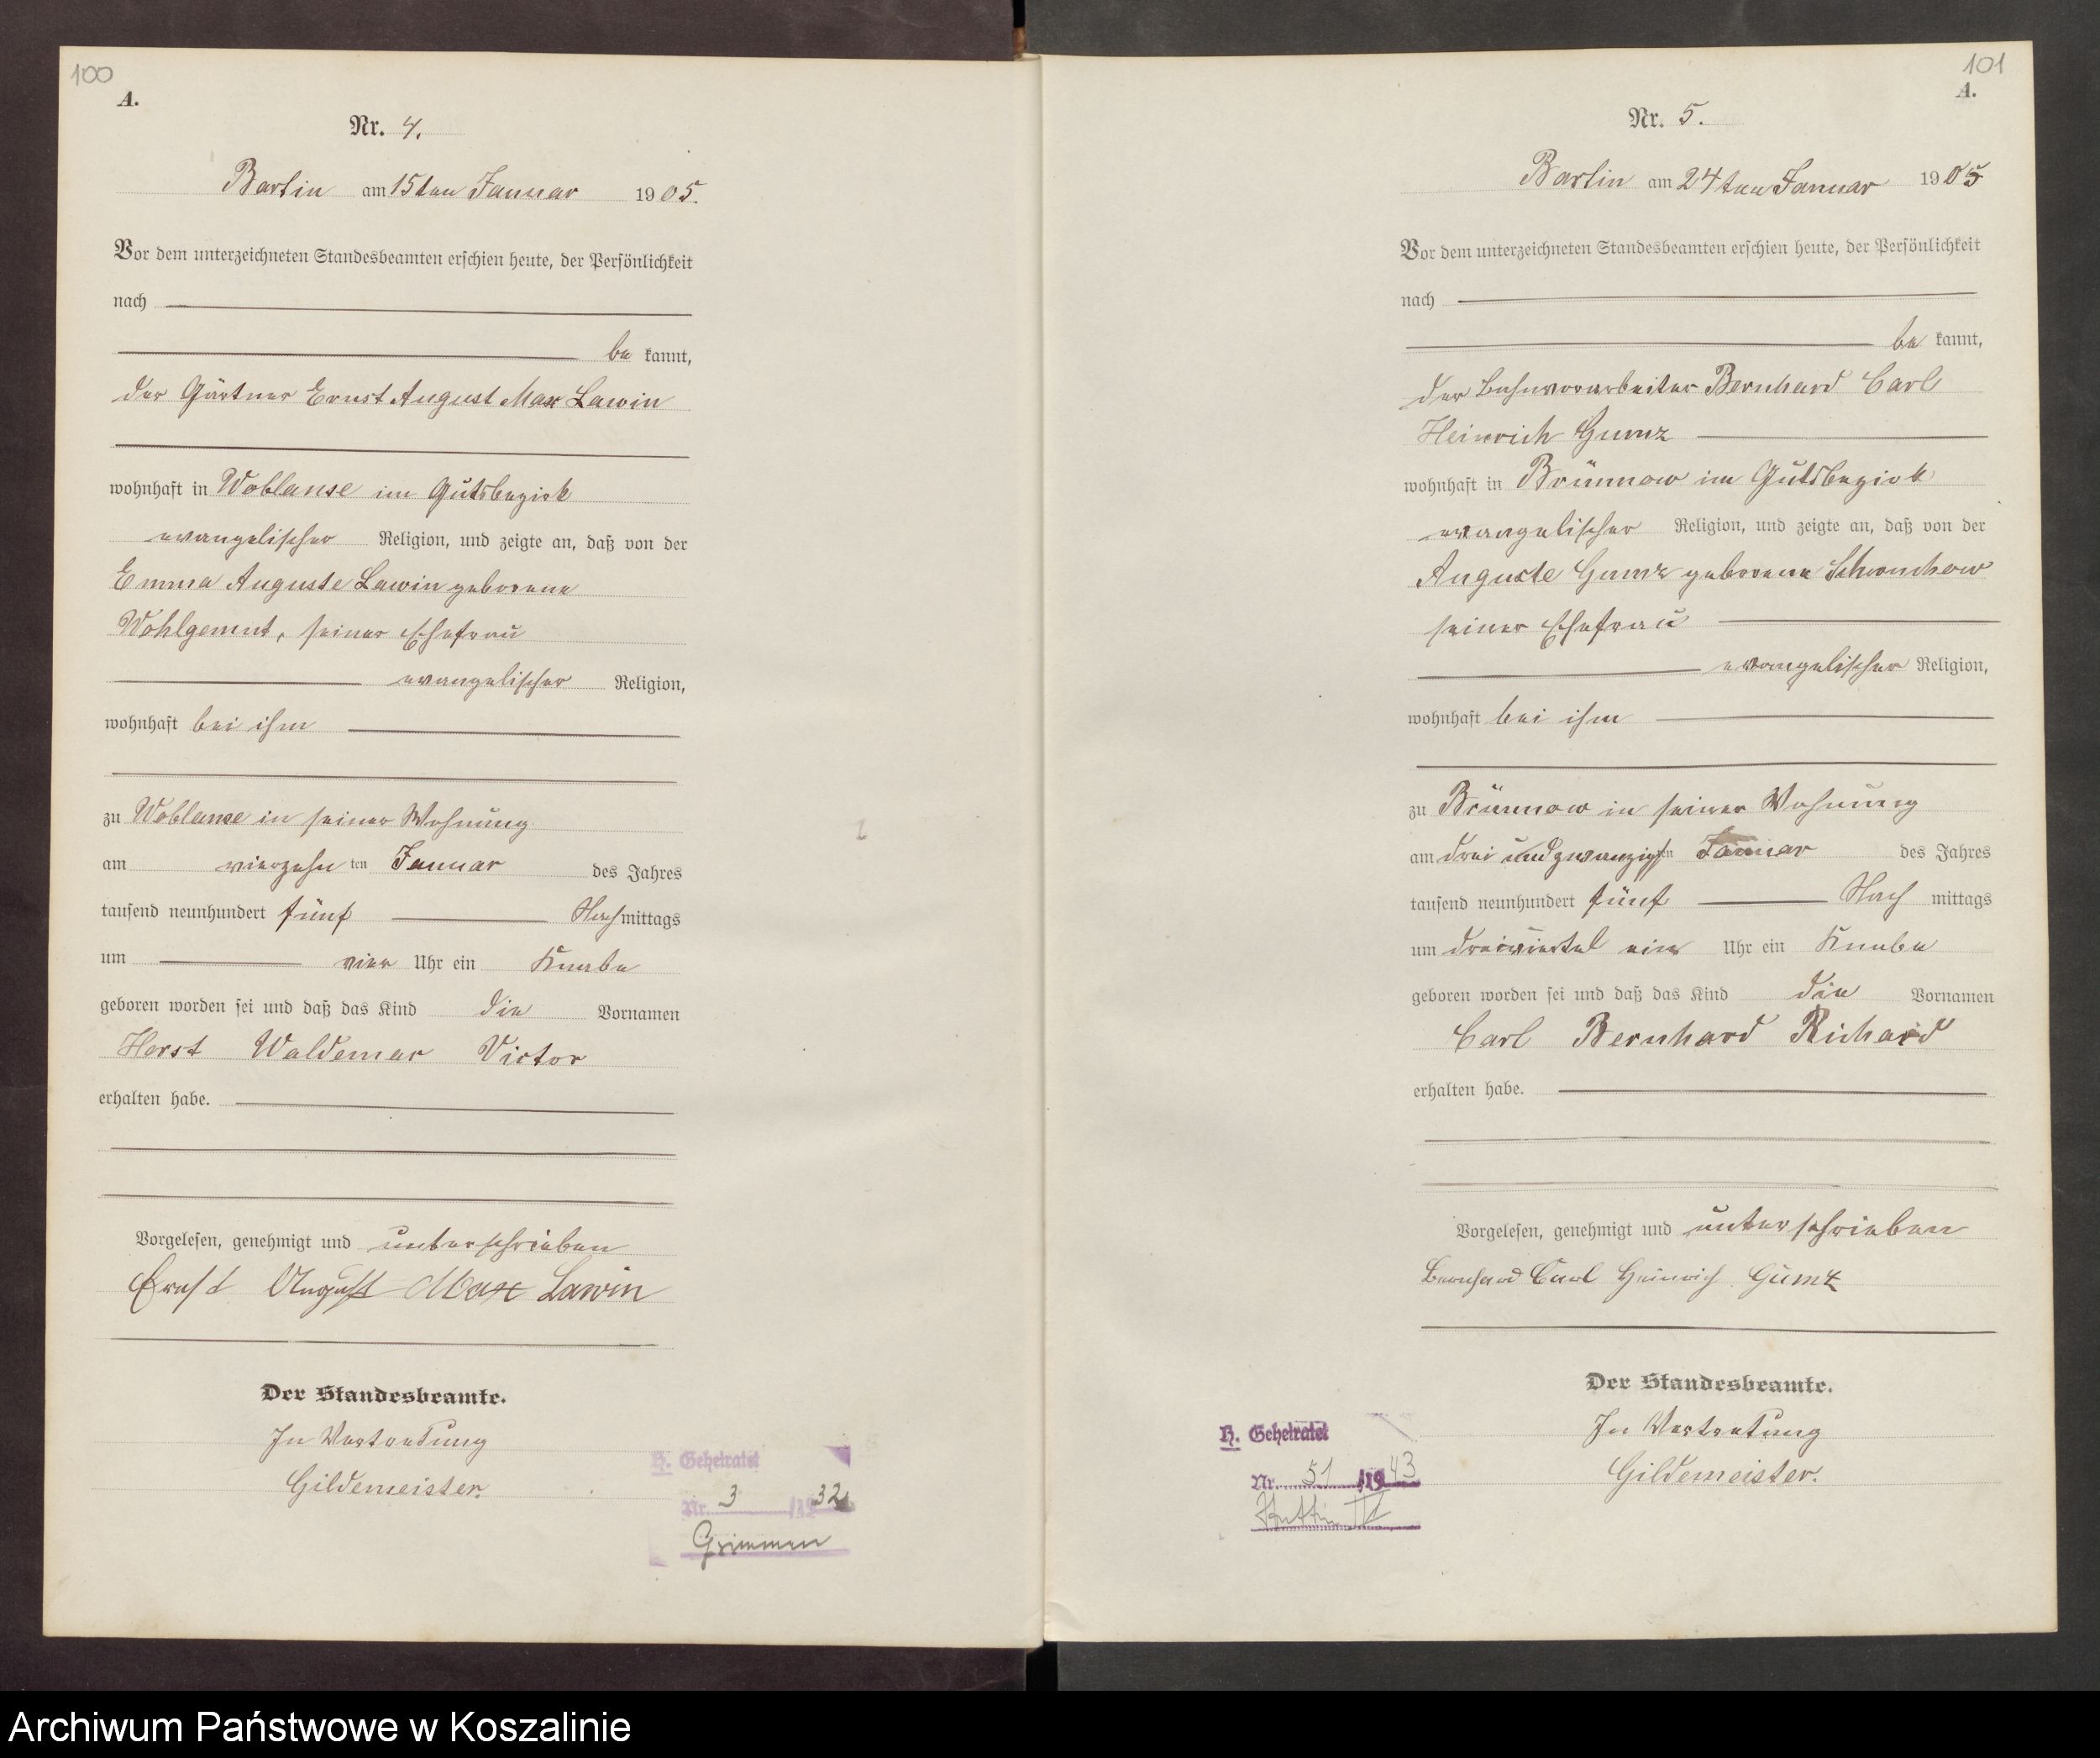 100
A.
Nr. 4.
Bartin am 15ten Januar 1905.
Vor dem unterzeichneten Standesbeamten erschien heute, der Persönlichkeit
nach
be kannt,
der Gärtner Ernst August Max Lawin
wohnhaft in Woblanse im Gutsbezirk
evangelischer Religion, und zeigte an, daß von der
Emma Auguste Lawin geborene
Wohlgemut, seiner Ehefrau
evangelischer Religion,
wohnhaft bei ihm
zu Woblanse in seiner Wohnung
am vierzehn ten Januar des Jahres
tausend neunhundert fünf Nachmittags
um vier Uhr ein Knabe
geboren worden sei und daß das Kind die Vornamen
Horst Waldemar Victor
erhalten habe.
Vorgelesen, genehmigt und unterschrieben
Ernst August Max Lawin
Der Standesbeamte.
In Vertretung
Gildemeister.
H. Geheiratet
Nr. 3 /1932
Grimmen
101
A.
Nr. 5.
Bartin am 24ten Januar 1905
Vor dem unterzeichneten Standesbeamten erschien heute, der Persönlichkeit
nach
be kannt,
der Bahnvorarbeiter Bernhard Carl
Heinrich Gumz
wohnhaft in Brünnow im Gutsbezirk
evangelischer Religion, und zeigte an, daß von der
Auguste Gumz geborene Schronchow
seiner Ehefrau
evangelischer Religion,
wohnhaft bei ihm
zu Brünnow in seiner Wohnung
am drei und zwanzigsten Januar des Jahres
tausend neunhundert fünf Nach mittags
um dreiviertel ein Uhr ein Knabe
geboren worden sei und daß das Kind die Vornamen
Carl Bernhard Richard
erhalten habe.
Vorgelesen, genehmigt und unterschrieben
Bernhard Carl Heinrich Gumz
Der Standesbeamte.
In Vertretung
Gildemeister.
H. Geheiratet
Nr. 51 /1943
Archiwum Państwowe w Koszalinie